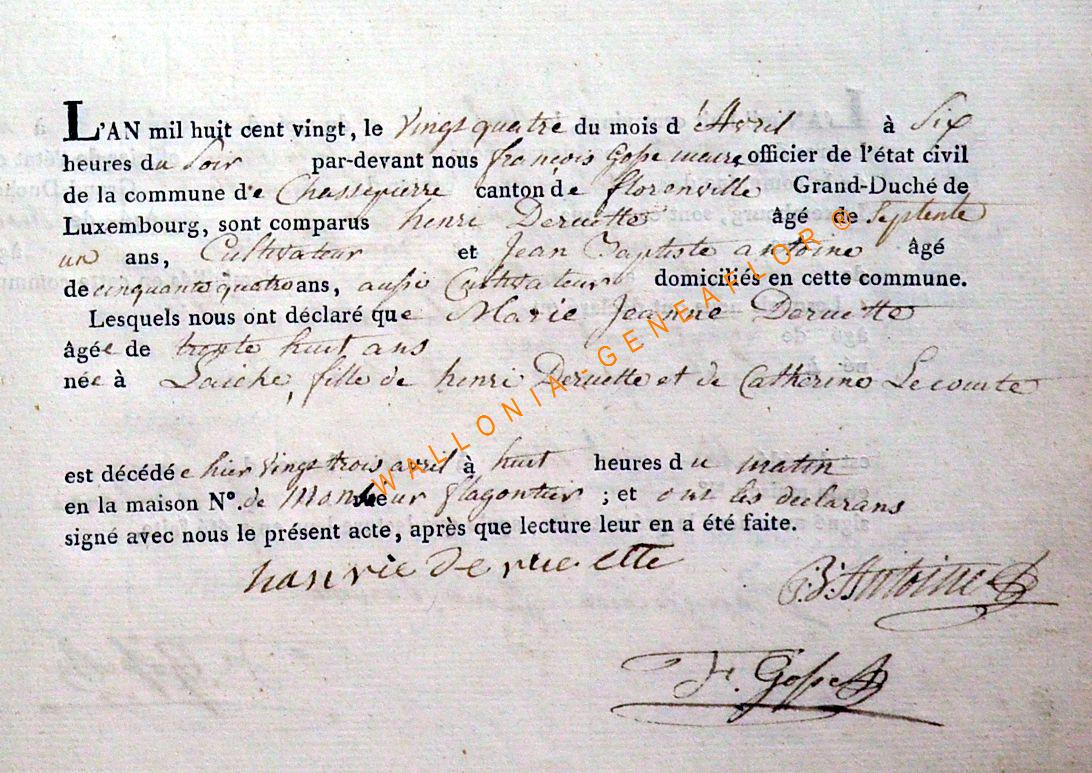 L'AN mil huit cent vingt, le vingt quatre du mois d'Avril à Six
heures du Soir par-devant nous françois Gosse maire officier de l'état civil
de la commune de Chassepierre canton de florenville Grand-Duché de
Luxembourg, sont comparus henri Deruette âgé de Septente
un ans, Cultivateur et Jean Baptiste antoine âgé
de cinquante quatre ans, aussi Cultivateur domiciliés en cette commune.
Lesquels nous ont déclaré que Marie Jeanne Deruette
âgée de trente huit ans
née à Laiche, fille de henri Deruette et de Catherine Lecomte
est décédée hier vingt trois avril à huit heures du matin
en la maison N°. de Monsieur flagontier ; et ont les declarans
signé avec nous le présent acte, après que lecture leur en a été faite.
hanrie deruuette
B: Antoine
F. Gosse
WALLONIA-GENEAFLOR©